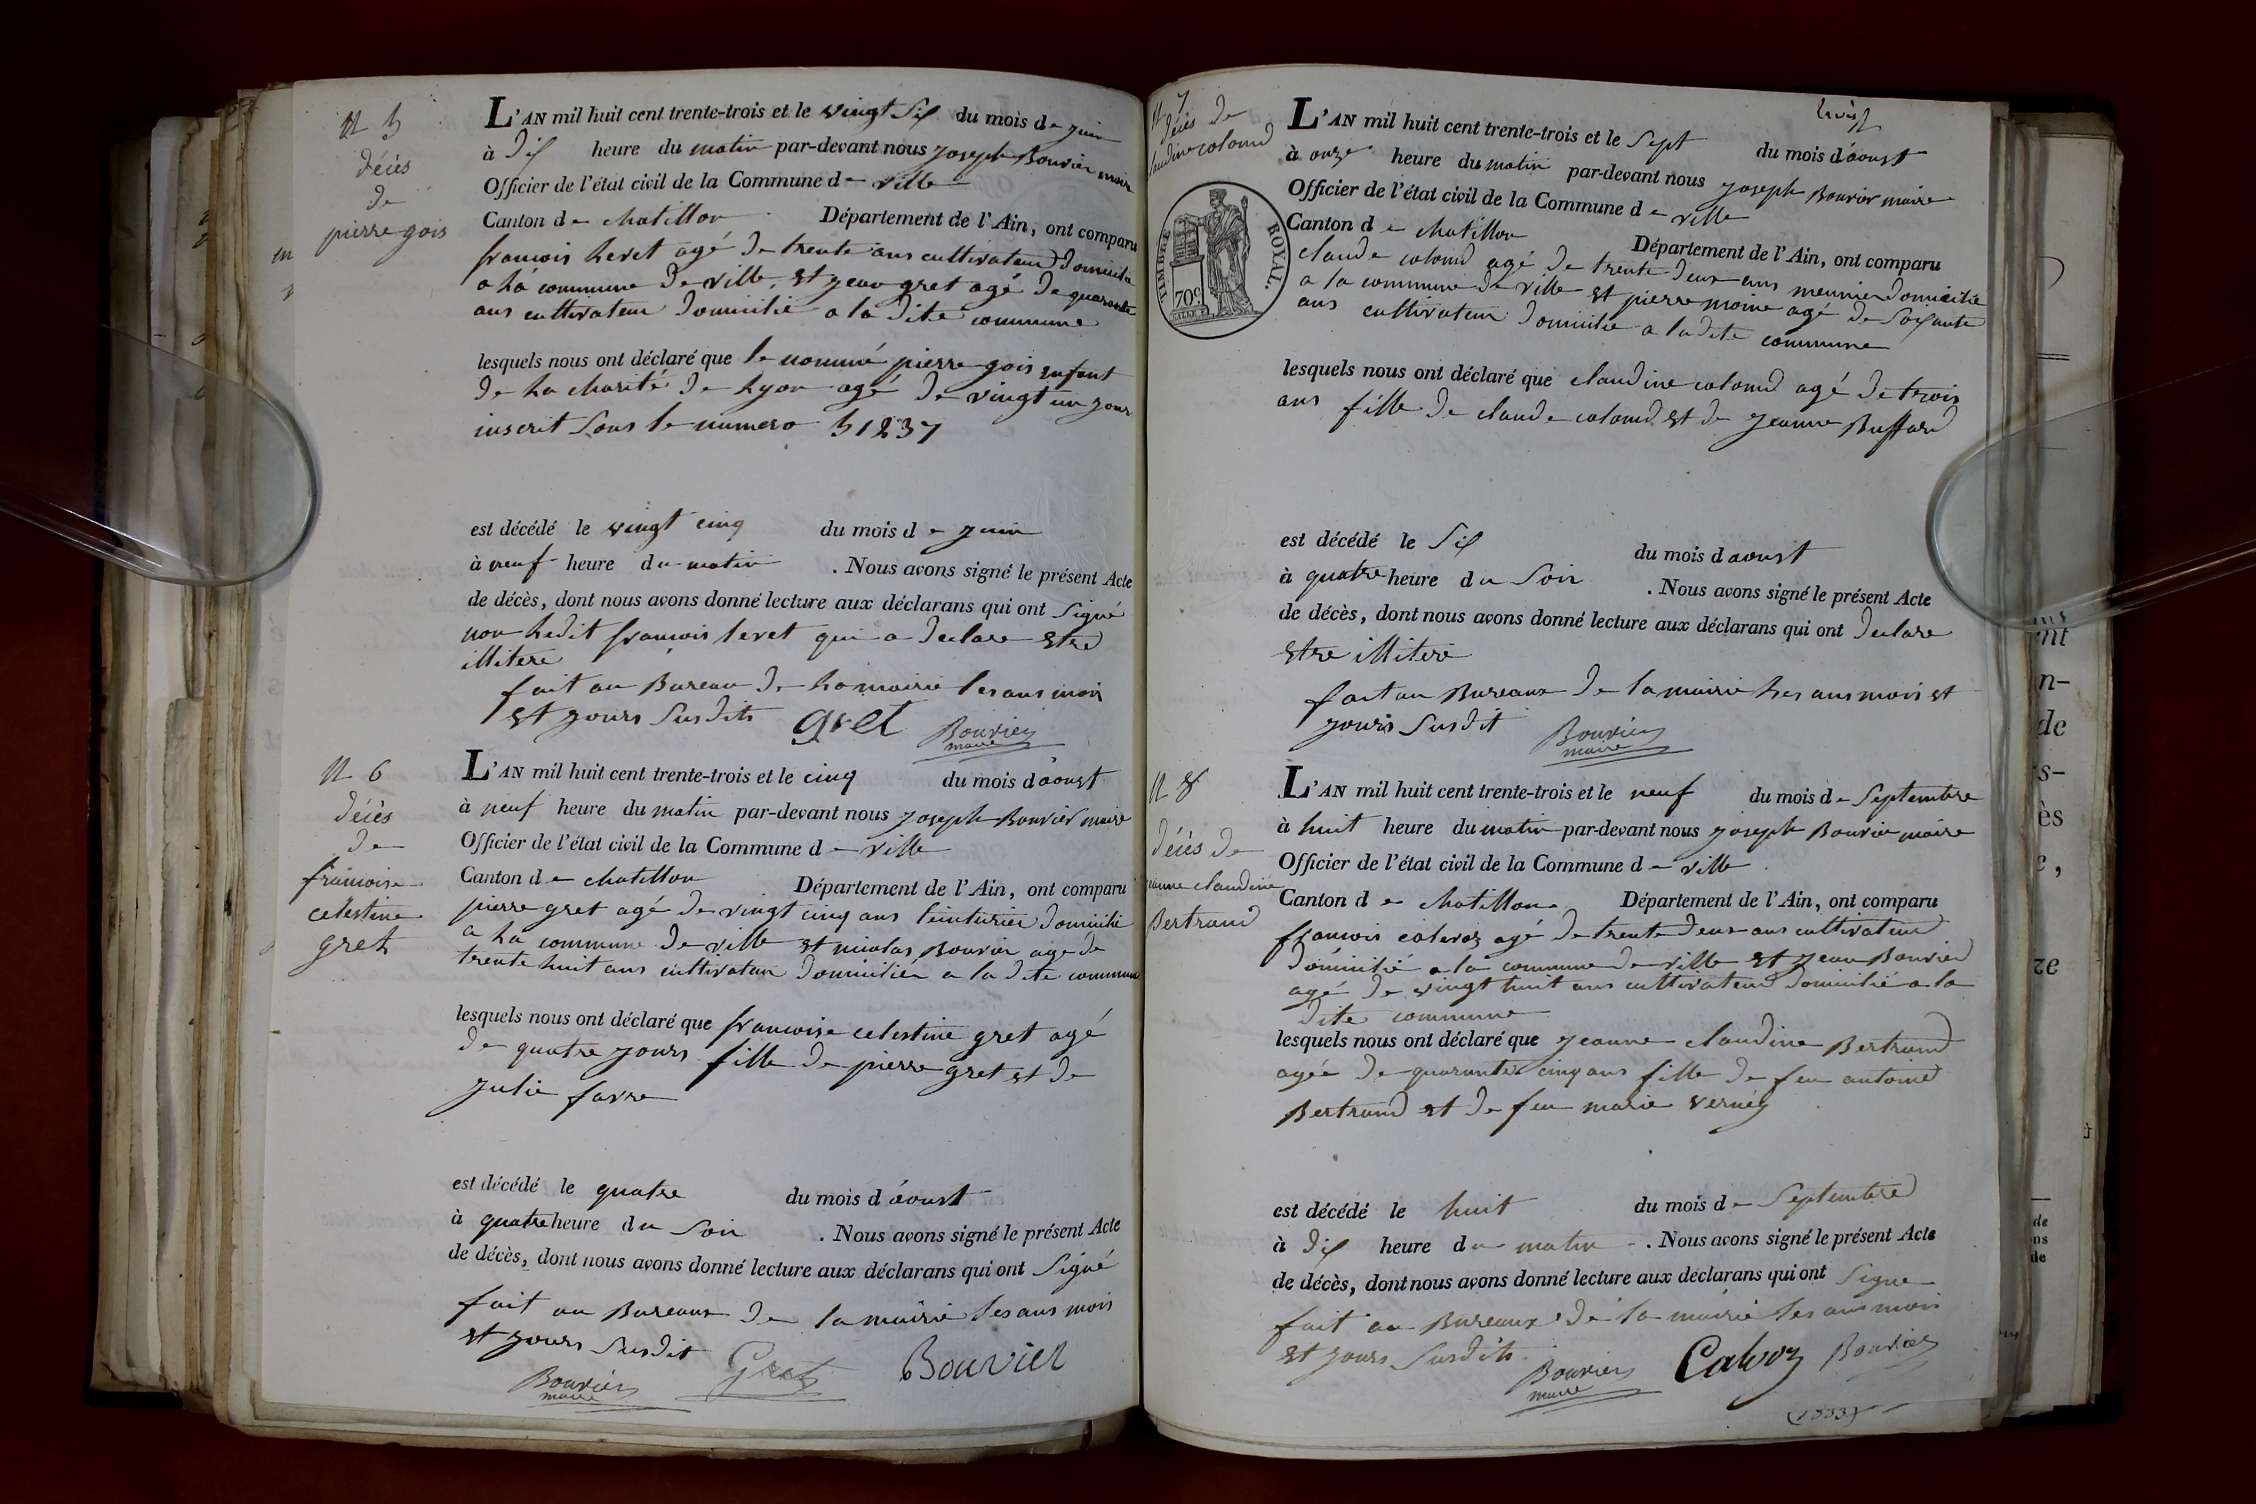 N 5
Décès
de
pierre gois
L'AN mil huit cent trente-trois et le vingt Six du mois de juin
à Dix heure du matin par-devant nous joseph Bouvier maire
Officier de l'état civil de la Commune de ville
Canton de chatillon Département de l'Ain, ont comparu
francois heret agé de trente ans cultivateur Domicilie
a La commune De ville, Et jean gret agé De quarante
ans cultivateur Domicilié a la Dite commune
lesquels nous ont déclaré que le nommé pierre gois Enfant
De La charité De Lyon agé De vingt un jour
inscrit Sous le numero 51237
est décédé le vingt cinq du mois de juin
à neuf heure du matin . Nous avons signé le présent Acte
de décès, dont nous avons donné lecture aux déclarans qui ont Signé
non Ledit francois heret qui a Declare Etre
illitere
fait au Bureau De La mairie les ans mois
Et jours Susdits gret Bouvier
maire
N 6
Décès
De
francoise
celestine
gret
L'AN mil huit cent trente-trois et le cinq du mois d'aoust
à neuf heure du matin par-devant nous joseph Bouvier maire
Officier de l'état civil de la Commune de ville
Canton de chatillon Département de l'Ain, ont comparu
pierre gret agé De vingt cinq ans teinturier Domicilie
a La commune De ville Et nicolas Bouvier age De
trente huit ans cultivateur Domicilier a la Dite commune
lesquels nous ont déclaré que francoise celestine gret agé
De quatre jours fille De pierre gret Et De
julie favre
est décédé le quatre du mois d'aoust
à quatre heure du Soir . Nous avons signé le présent Acte
de décès, dont nous avons donné lecture aux déclarans qui ont Signé
fait au Bureaux De la mairie les ans mois
Et jours Susdit
Bouvier Gret Bouvier
maire
N 7
Décès De
claudine colomd
trois
TIMBRE ROYAL.
70c
L'AN mil huit cent trente-trois et le Sept du mois d'aoust
à onze heure du matin par-devant nous joseph Bouvier maire
Officier de l'état civil de la Commune de ville
Canton de chatillon Département de l'Ain, ont comparu
claude colomd agé De trente Deux ans meunier Domicilie
a la commune De ville Et pierre moine agé De Soixante
ans cultivateur Domicilie a la Dite commune
lesquels nous ont déclaré que claudine colomd agé De trois
ans fille De claude colomd Et de jeanne Buffard
est décédé le Six du mois d aoust
à quatre heure du Soir . Nous avons signé le présent Acte
de décès, dont nous avons donné lecture aux déclarans qui ont Declare
Etre illiteré
fait au Bureaux De la mairie Les ans mois Et
jours Susdit Bouvier
maire
N 8
Décès De
jeanne claudine
Bertrand
L'AN mil huit cent trente-trois et le neuf du mois de Septembre
à huit heure du matin par-devant nous joseph Bouvier maire
Officier de l'état civil de la Commune de ville
Canton de chatillon Département de l'Ain, ont comparu
francois agé De trente Deux ans cultivateur
Domicilié a la commune De ville Et jean Bouvier
agé De vingt huit ans cultivateur Domicilié a la
Dite commune
lesquels nous ont déclaré que jeanne claudine Bertrand
agée De quarante cinq ans fille De feu antoine
Bertrand Et De feu marie verney
est décédé le huit du mois de Septembre
à Dix heure du matin . Nous avons signé le présent Acte
de décès, dont nous avons donné lecture aux déclarans qui ont Signe
fait au Bureaux De la mairie les ans mois
Et jours Susdits
Bouvier Calvoz Bouvier
maire
(1833)